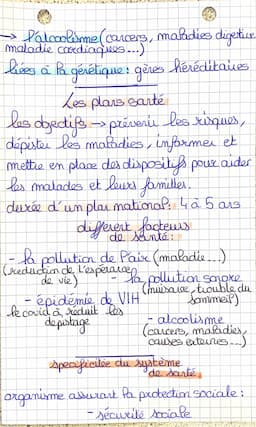 → l'alcoolisme (cancers, maladies digestive
maladie cardiaques...)
liées à la génétique : gènes héréditaires
Les plans santé
les objectifs → prévenir les risques,
dépister les maladies, informer et
mettre en place des dispositifs pour aider
les malades et leurs familles.
durée d'un plan national : 4 à 5 ans
différent facteurs
de santé :
- la pollution de l'air (maladie...)
(reduction de l'espérance
de vie)
- la pollution sonore
(nuisance, trouble du
sommeil)
- épidémie de VIH
le covid à réduit les
depistage
- alcoolisme
(cancers, maladies,
causes externes...)
specificitée du système
de santé
organisme assurant la protection sociale :
- sécurité sociale